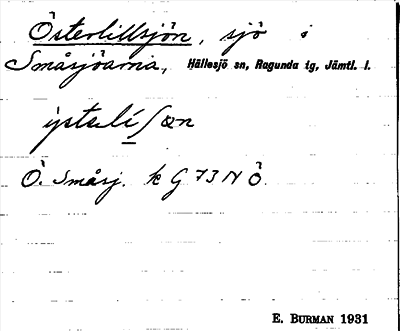 Österlillsjön, sjö i
Småsjöarna, Hällesjö sn, Ragunda tg, Jämtl. l.
Ö. Småsj. k G 73 N Ö.
E. BURMAN 1931